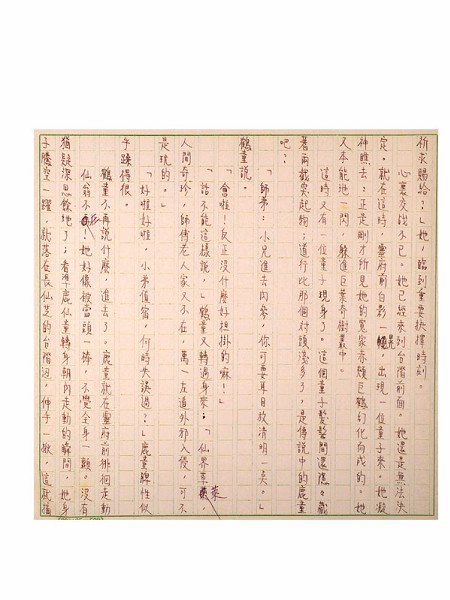 祈求賜給？」她，臨到重要抉擇時刻。
心裏交战不已。她已經來到台階前面。她還是無法決
定。就在這時，靈府前白影一幌，出現一位童子來。她凝
神瞧去：正是剛才所見她的冤家赤頰巨鶴幻化而成的。她
又本能地一閃，躲進巨葉奇樹叢中。
這時又有一位童子現身了。這個童子髮髻間還隱々戴
着兩截突起物；道行比那個対頭淺多了，是傳說中的鹿童
吧？
「師弟：小兄進去內寮，你可要耳目放清明一夹。」
鶴童說。
「會啦！反正沒什麼好担掛的嘛！」
「話不能這樣說，」鶴童又轉過身來：「仙界草藥
人間奇珍，師傅老人家又不在，萬一左道外邪入侵，可不
是玩的。」
「好啦好啦，小弟值宿，何時失误過？」鹿童躁性似
乎躁得很。
鶴童不再說什麼，進去了。鹿童就在靈府前徘徊走動
仙翁不在！她好像被當頭一棒，不覺全身一顫。沒有
猶疑深思餘地了；看準鹿仙童轉身朝內走動的瞬間，她身
子騰空一躍，就落在長仙芝的台階边，伸手一掀，這就摘